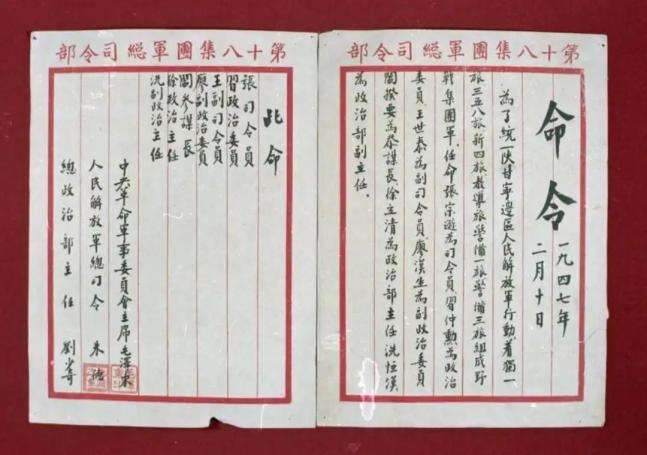 第十八集團軍緫司令部
命令
一九四七年
二月十日
為了統一陝甘寧邊區人民解放軍行動着獨一
旅三五八旅新四旅教導旅警備一旅警備三旅組成野
戰集團軍,任命張宗遜為司令員習仲勳為政治
委員,王世泰為副司令員,廖漢生為副政治委員
閻揆要為參謀長徐立清為政治部主任冼恒漢
為政治部副主任。
第十八集團軍緫司令部
此命
張司令員
習政治委員
王副司令員
廖副政治委員
閻參謀長
徐政治主任
冼副政治主任
中央革命軍事委員會主席毛澤東
人民解放軍總司令 朱德
總政治部主任 劉少奇